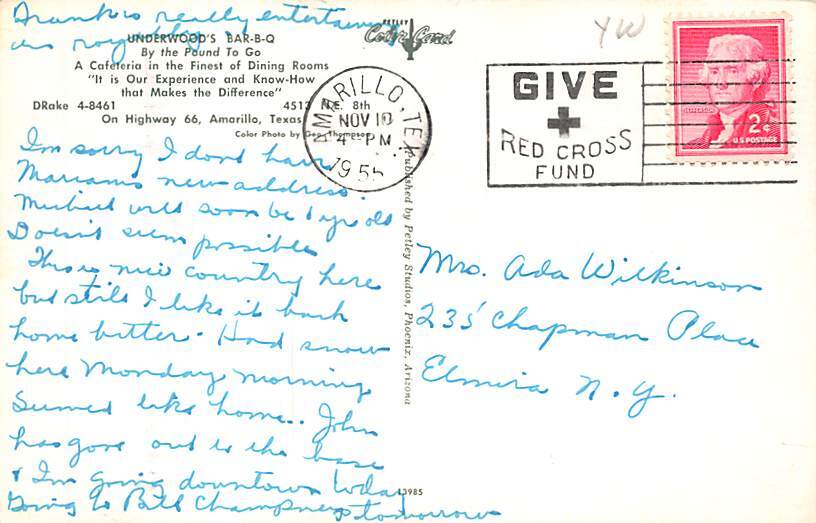 Frank is really entertaining
us royally
UNDERWOOD'S BAR-B-Q
By the Pound To Go
A Cafeteria in the Finest of Dining Rooms
"It is Our Experience and Know-How
that Makes the Difference"
DRake 4-8461 4513 N.E. 8th
On Highway 66, Amarillo, Texas
Color Photo by Geo. Thompson
I'm sorry I dont have
Marians new address.
Michael will soon be 1 yr old
Doesn't seem possible
This is nice country here
but still I like it back
home better. Had snow
here Monday morning
Seemed like home.. John
has gone out to the base
& I'm going downtown today
Going to Bill Champneys tomorrow
PETLEY
Color Card
Published by Petley Studios, Phoenix, Arizona
13985
AMARILLO, TEX.
NOV 10
4 - PM
1955
YW
GIVE
RED CROSS
FUND
JEFFERSON
2¢
U.S. POSTAGE
Mrs. Ada Wilkinson
235 Chapman Place
Elmira N.Y.